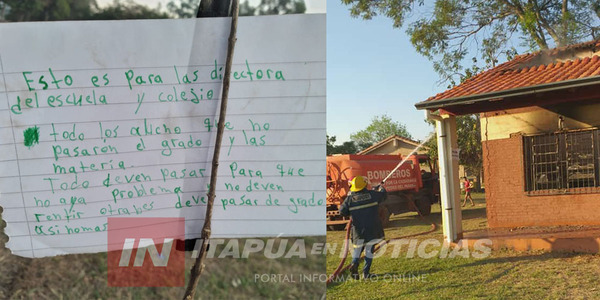 Esto es para las directora
del escuela y colejio
todo los alucho que no
pasaron el grado y las
materia
Todo deven pasar Para que
no aya problema y no deven
rentir otrabes deven pasar de grado
asi nomas
BOMBEROS
IN ITAPÚA EN NOTICIAS
PORTAL INFORMATIVO ONLINE